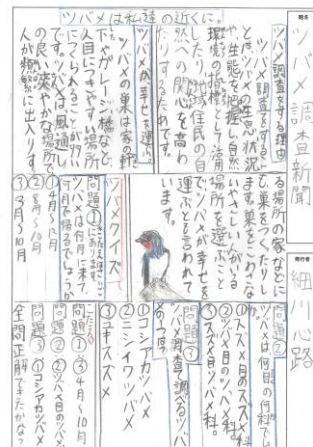 ツバメ調査新聞
発行者
細川心路
ツバメは私達の近くに。
ツバメ調査をする理由
ツバメ調査をすること
とはツバメの生息状況
や生態を把握し自然
環境の指標として活用
したり、地域住民の自
然への関心を高め
たりするためです。
ツバメが幸せを運ぶ
ツバメの巣は家の軒
下やガレージ、橋など、
人目につきやすい場所
につくられることが多い
です。ツバメは風通し
の良い爽やかな場所で
人が頻繁に出入りす
る場所の家などに
巣をつくったりし
ます。巣をこわさな
いやさしい人がいる
場所を選ぶこと
でツバメが幸せを
運ぶとも言われて
います。
ツバメクイズ
問題①
ツバメは何月に来て、
何月で帰るでしょうか
①4月〜12月
②8月〜10月
③3月〜10月
問題②
ツバメは何目の何科でしょ
①スズメ目のスズメ科
②ツバメ目のツバメ科
③スズメ目ツバメ科。
問題③
ツバメ調査で調べるツバ
①コシアカツバメ
②ニシイワツバメ
③ユキスズメ
こたえ
問題①③4月〜10月
問題②②ツバメ目のツバメ
問題③①コシアカツバメ
全問正解できたかな？